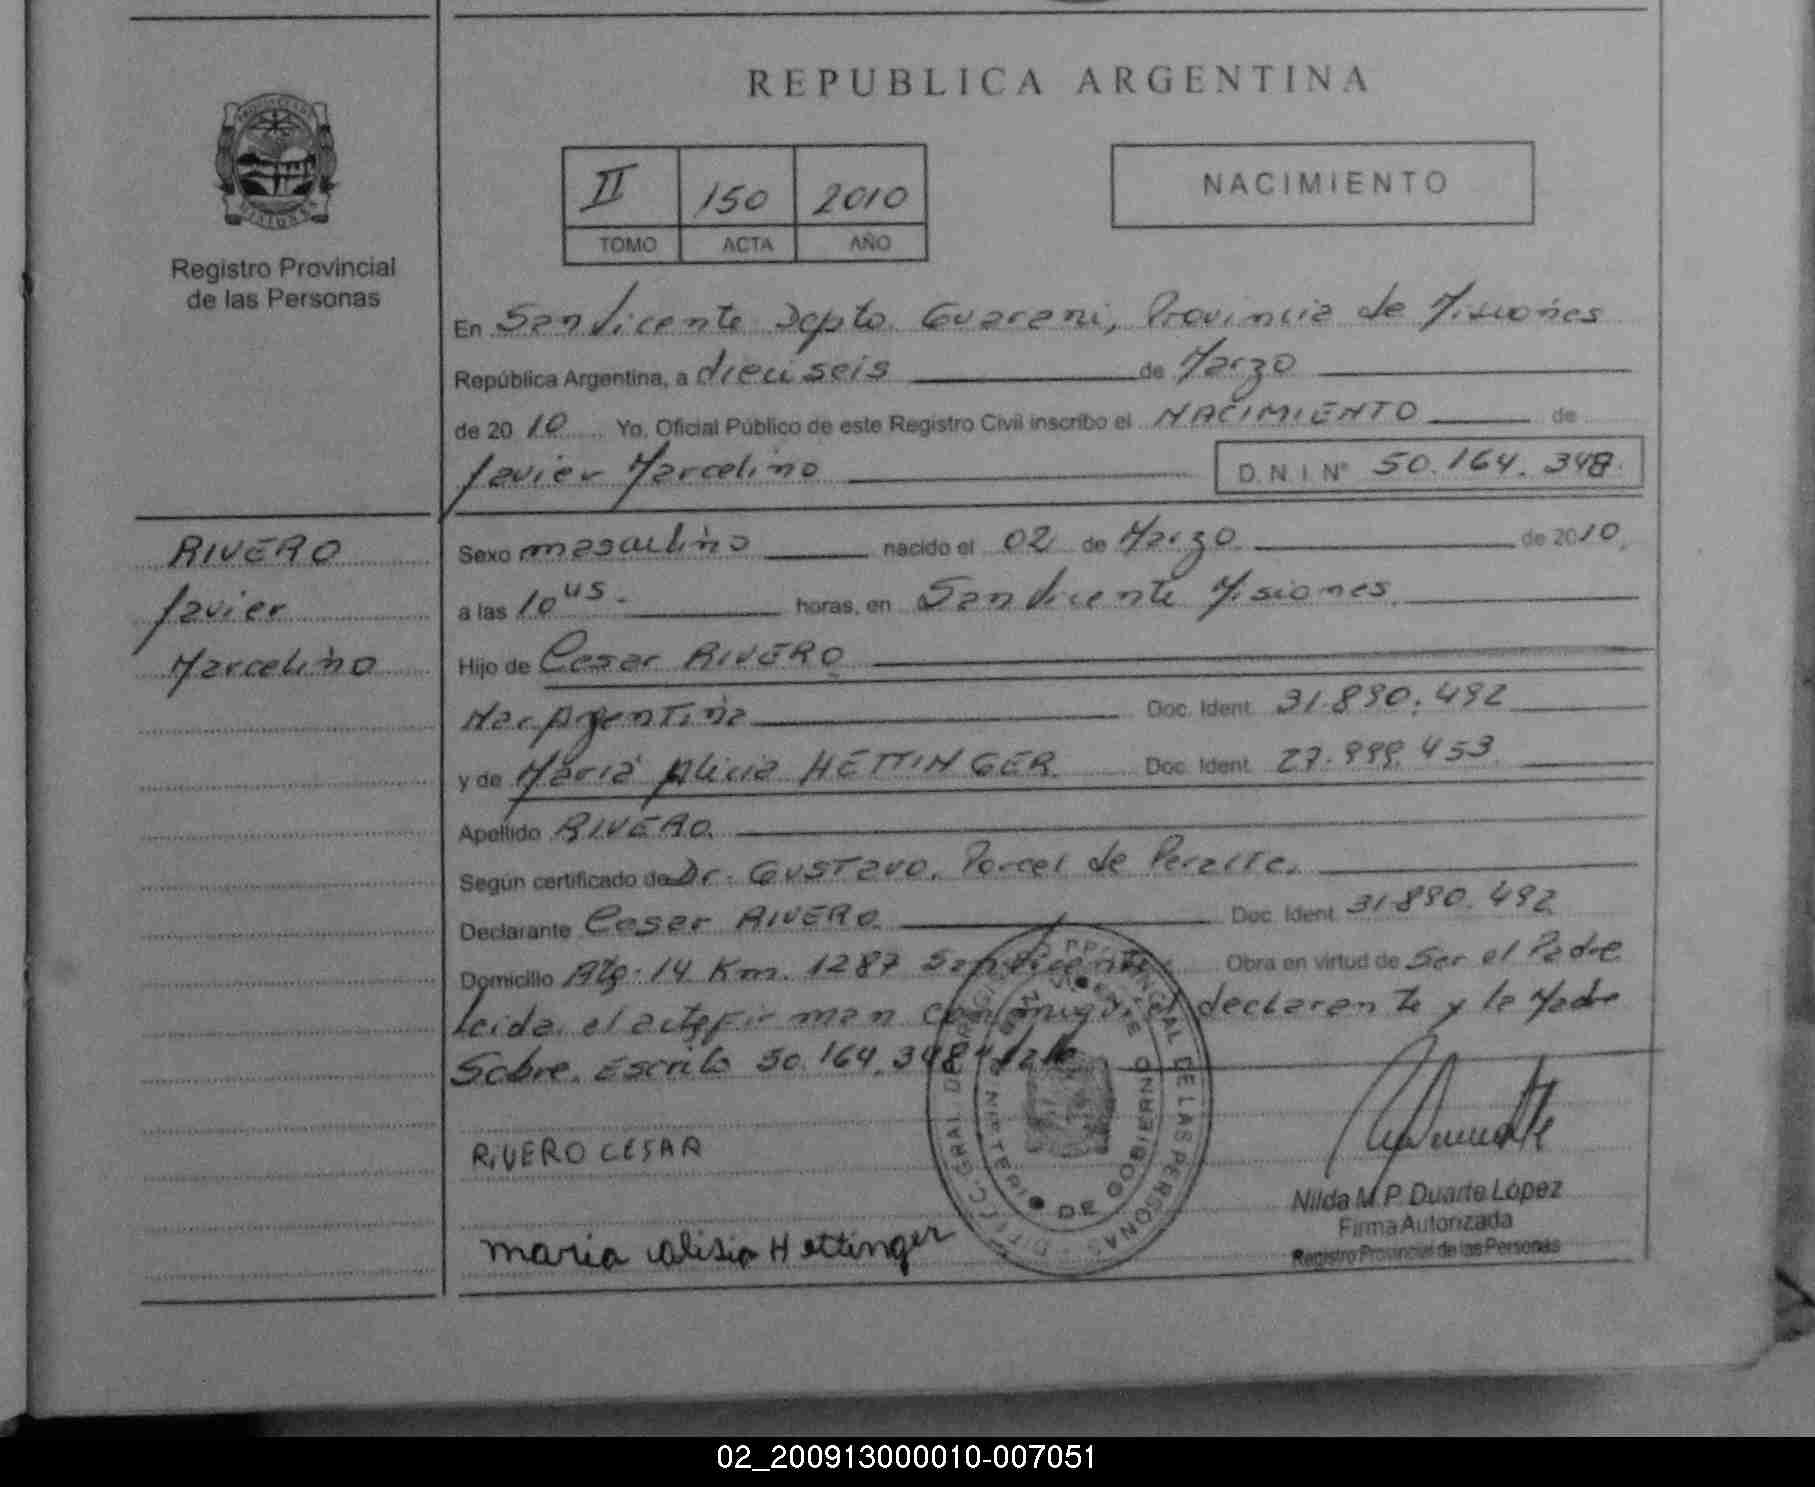 REPUBLICA ARGENTINA
Registro Provincial
de las Personas
II 150 2010
TOMO ACTA AÑO
NACIMIENTO
En San Vicente Dpto. Guarani, Provincia de Misiones
República Argentina, a dieciseis de Marzo
de 2010 Yo, Oficial Público de este Registro Civil inscribo el NACIMIENTO de
Javier Marcelino D.N.I. Nº 50.164.348.
RIVERO
Javier
Marcelino
Sexo masculino nacido el 02 de Marzo de 2010.
a las 10 45. horas, en San Vicente Misiones.
Hijo de Cesar RIVERO
Nac Argentina Doc. Ident. 31.890.492
y de Maria Alicia HETTINGER Doc. Ident. 27.999.453.
Apellido RIVERO.
Según certificado de Dr. Gustavo. Porcel de Peralta.
Declarante Cesar RIVERO Doc. Ident. 31.890.492
Domicilio Rta. 14 Km. 1287 San Vicente Obra en virtud de Ser el Padre
Leida el acta firman conmigo el declarante y la Madre
Sobre. Escrito 50.164.348" Vale
DIREC. GRAL. DEL REGISTRO PROVINCIAL DE LAS PERSONAS
MINISTERIO DE GOBIERNO
SAN VICENTE
RIVERO CESAR
maria alisia Hettinger
Nilda M.P. Duarte López
Firma Autorizada
Registro Provincial de las Personas
02_200913000010-007051